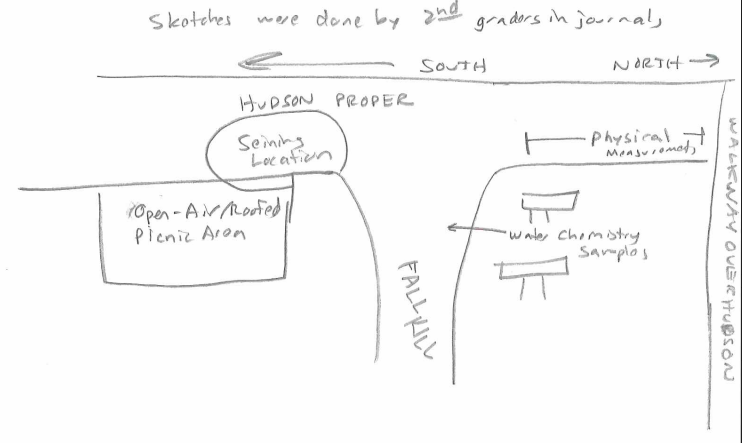 Sketches were done by 2nd graders in journals
SOUTH
NORTH
HUDSON PROPER
Seining
Location
Physical
Measurements
Open-Air/Roofed
Picnic Area
Water Chemistry
Samples
FALLKILL
WALKWAY OVER HUDSON